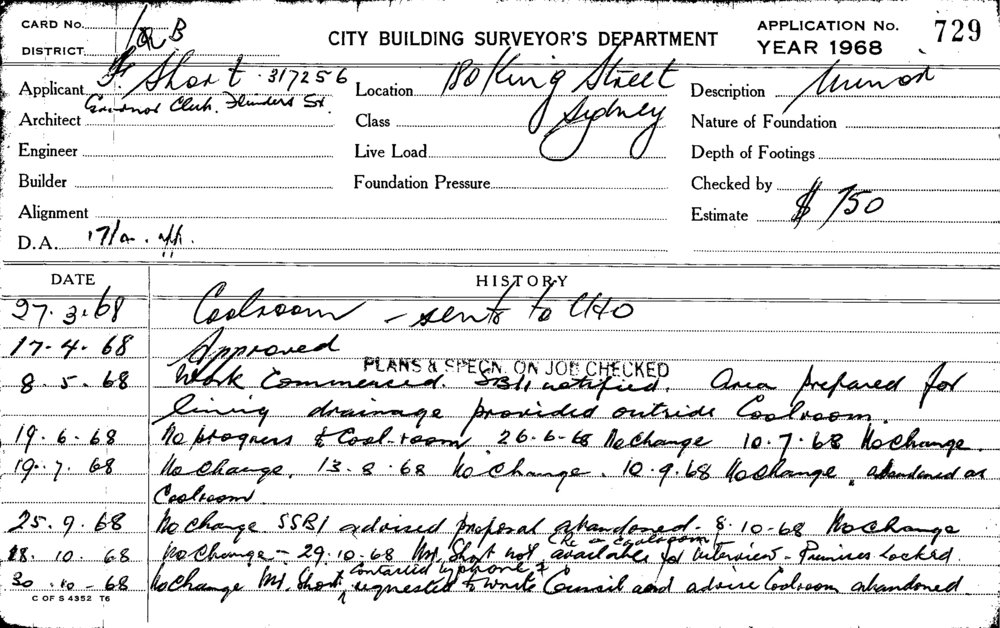 CARD No. B
CITY BUILDING SURVEYOR'S DEPARTMENT
APPLICATION No. 729
YEAR 1968
DISTRICT
Applicant F. Short. 317256
Governor Club. Flinders St.
Location 180 King Street
Sydney
Description Minor
Architect
Class
Nature of Foundation
Engineer
Live Load
Depth of Footings
Builder
Foundation Pressure
Checked by
Alignment
Estimate $750
D.A. 17/a. aff.
DATE HISTORY
27.3.68 Coolroom - sent to CHO
17.4.68 Approved
PLANS & SPECN. ON JOB CHECKED
8.5.68 Work Commenced. SBI notified. Area prepared for
lining drainage provided outside Coolroom.
19.6.68 No progress to Cool room 26-6-68 No Change 10.7.68 No Change.
19.7.68 No Change. 13.8.68 No Change. 10.9.68 No Change. abandoned as
Coolroom
25.9.68 No change SSBI advised proposal abandoned - 8.10-68 No Change
(Re a Coolroom)
28.10.68 No Change - 29.10.68 Mr. Short not available for interview - Premises Locked.
contacted by phone &
30.10-68 No Change Mr. Short requested to write Council and advise Coolroom abandoned.
C OF S 4352 T6